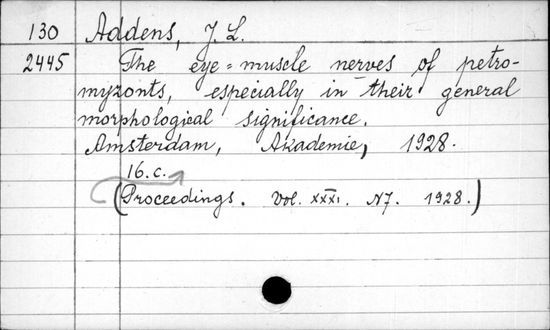 130 Addens, J. L.
2445 The eye=muscle nerves of petro-
myzonts, especially in their general
morphological significance.
Amsterdam, Akademie, 1928.
16.c.
(Proceedings. Vol. XXXI. N7. 1928.)